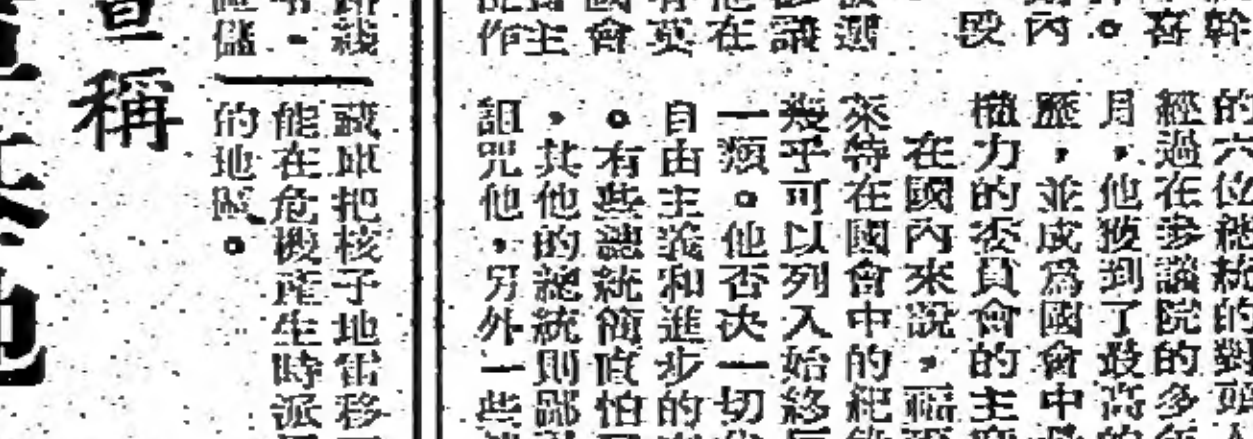 幹
喜
。
內
段
選
議
他在
有英
國會
主
作
的六位總統的對頭
經過在參議院的多年
月，他獲到了最高的
歷，並成爲國會中
權力的委員會的主席
在國內來說，福
來特在國會中的紀錄
幾乎可以列入始終
一類。他否决一切
自由主義和進步的
。有些總統簡直怕
，其他的總統則鄙
詛咒他，另外一些
路綫
儲
藏庫把核子地雷移
能在危機產生時派
的地區。
宣稱
地